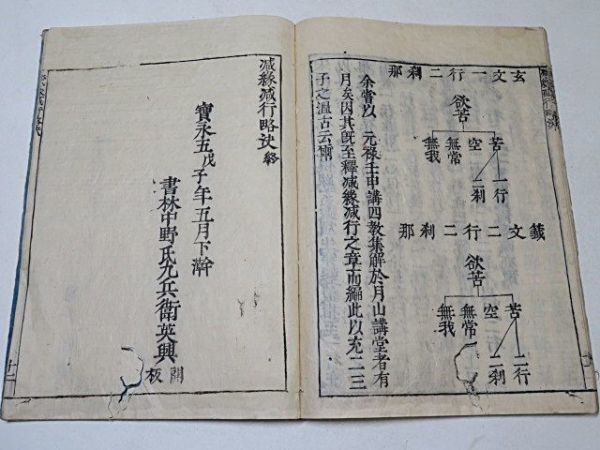 玄文一行二刹那
欲苦
苦
空
無常
無我
一行
二刹
籤文二行二刹那
欲苦
苦
空
無常
無我
二行
二刹
余嘗以元禄壬申講四教集解於月山講堂者有
月矣因其既至釋減縁減行之章而編此以充二三
子之温古云爾
減縁減行略訣終
寳永五戊子年五月下澣
書林中野氏九兵衛英興
開板
十二